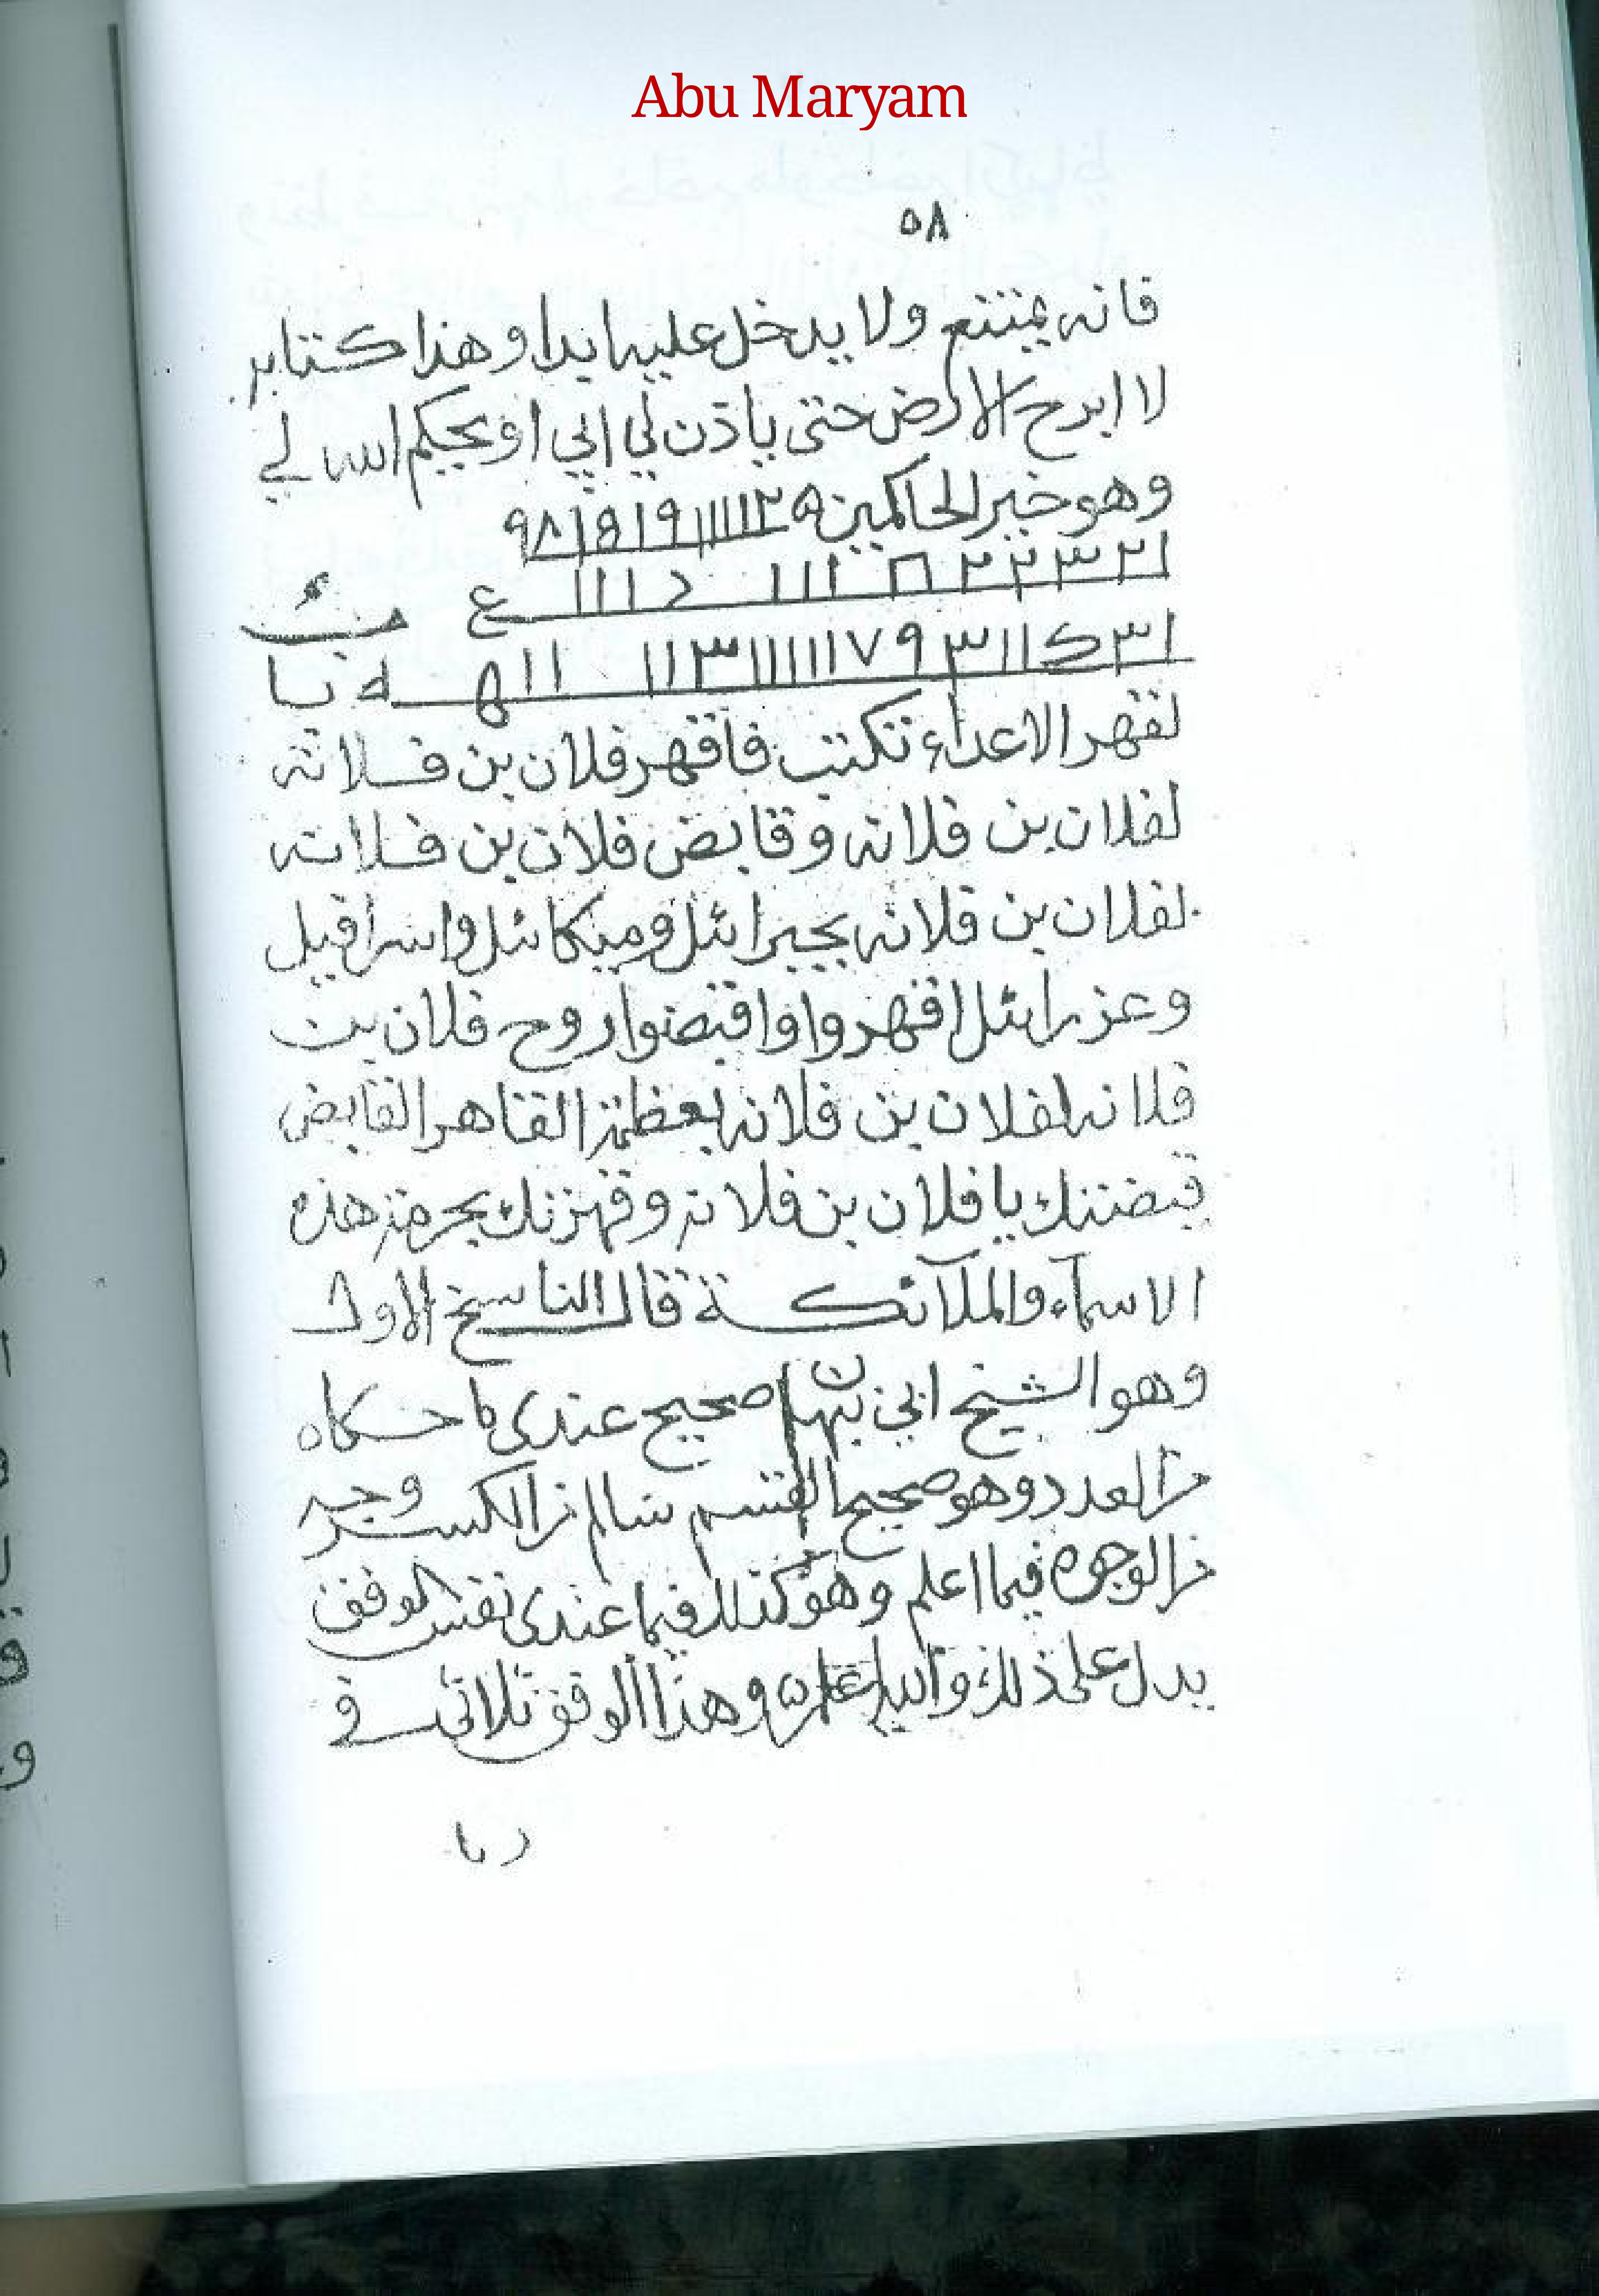 Abu Maryam
٥٨
فانه يمتنع ولا يدخل عليها بدا وهذا كتابه
لا ابرح الارض حتى ياذن لي ابي او يحكم الله لي
وهو خير الحاكمين
لقهر الاعداء تكتب فاقهر فلان بن فلانه
لفلان بن فلانه وقابض فلان بن فلانه
لفلان بن فلانه بجبرائل وميكائل واسرافيل
وعزرائل اقهروا واقبضوا روح فلان بن
فلانه لفلان بن فلانه بعظمة القاهر القابض
قبضتك يا فلان بن فلانه وقهرتك بحرمة هذه
الاسمآء والملآئكة قال الناسخ الاول
وهو الشيخ ابي صحيح عندى ما حكاه
من العدد وهو صحيح القسم سالم من الكسر وجه
من الوجوه فيما اعلم وهو كذلك فيما عندى نفس الوفق
يدل على ذلك وهذا الوفق ثلاثى في